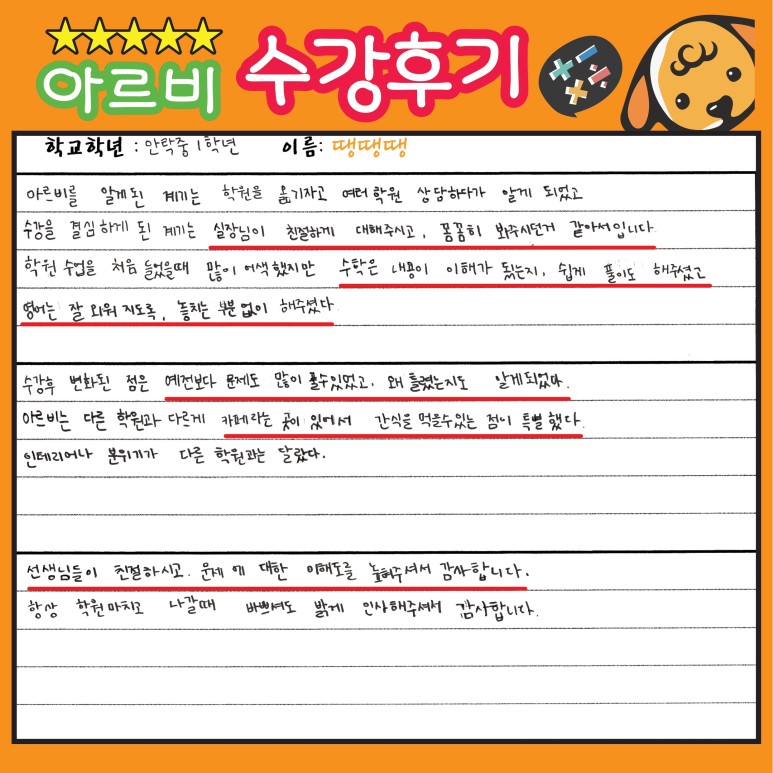 아르비 수강후기
학교학년 : 안락중 1학년 이름: 땡땡땡
아르비를 알게된 계기는 학원을 옮기자고 여러학원 상담하다가 알게 되었고
수강을 결심하게 된 계기는 실장님이 친절하게 대해주시고, 꼼꼼히 봐주시던거 같아서입니다.
학원 수업을 처음 들었을때 많이 어색했지만 수학은 내용이 이해가 됬는지, 쉽게 풀이도 해주셨고
영어는 잘 외워 지도록, 놓치는 부분 없이 해주셨다.
수강후 변화된 점은 예전보다 문제도 많이 풀수있었고, 왜 틀렸는지도 알게되었다.
아르비는 다른 학원과 다르게 카페라는 곳이 있어서 간식을 먹을수있는 점이 특별했다.
인테리어나 분위기가 다른 학원과는 달랐다.
선생님들이 친절하시고. 문제에 대한 이해도를 높혀주셔서 감사합니다.
항상 학원마치고 나갈때 바쁘셔도 밝게 인사해주셔서 감사합니다.